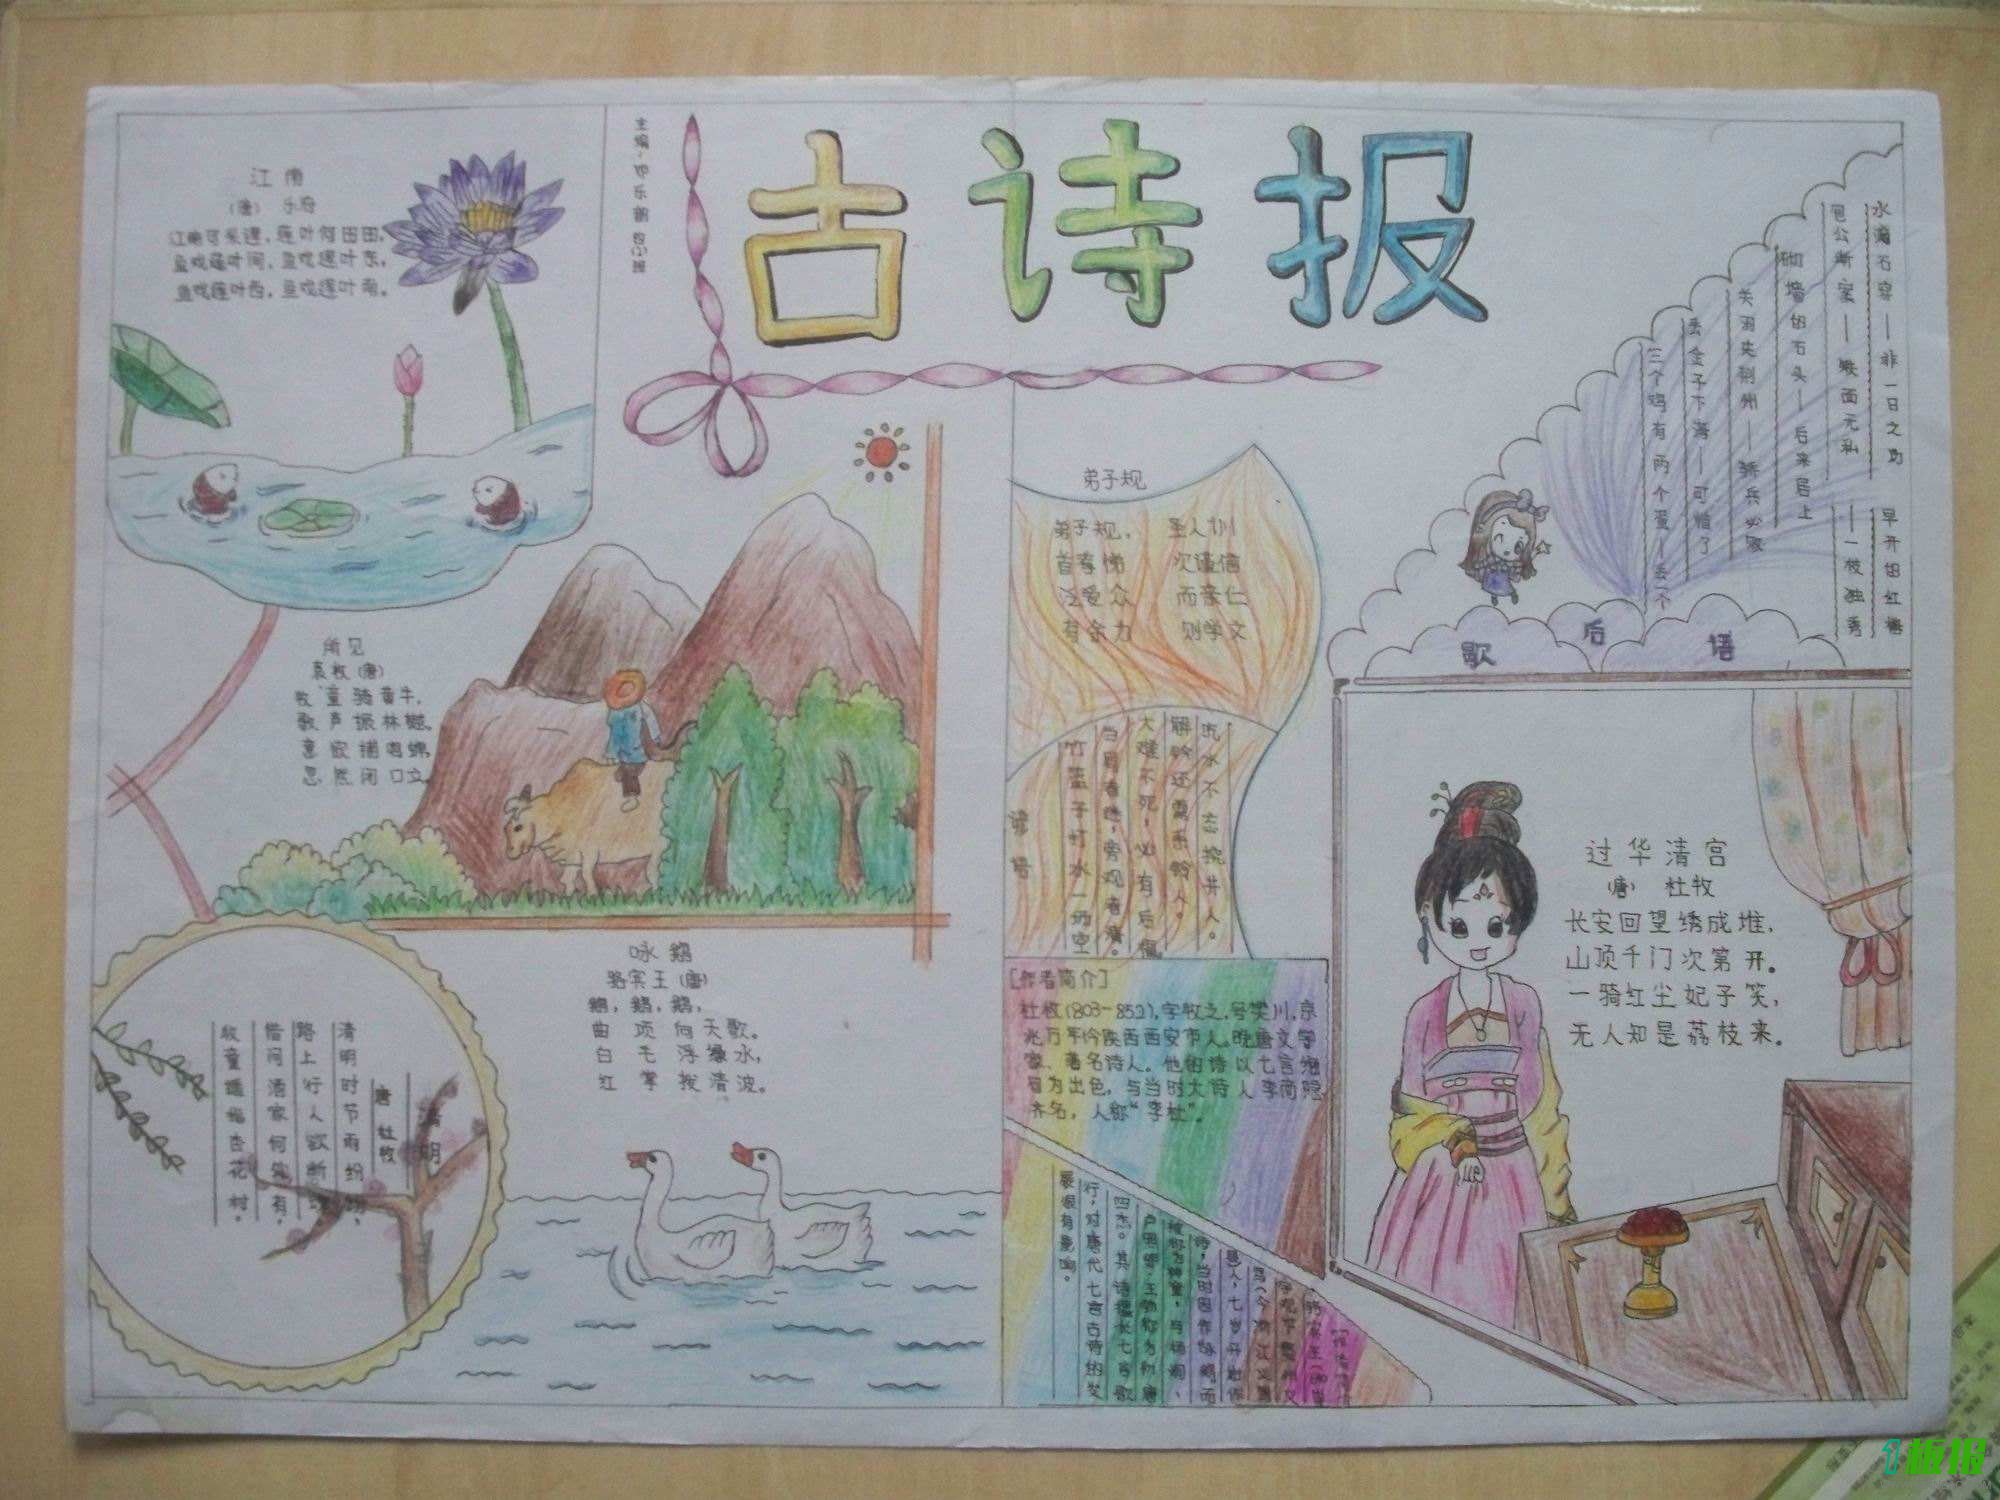 古诗报
江南
(唐) 乐府
江南可采莲，莲叶何田田。
鱼戏莲叶间，鱼戏莲叶东，
鱼戏莲叶西，鱼戏莲叶南。
所见
袁牧(唐)
牧童骑黄牛，
歌声振林樾。
意欲捕鸣蝉，
忽然闭口立
清明
唐 杜牧
清明时节雨纷纷，
路上行人欲断
借问酒家何处有，
牧童遥指杏花村。
咏鹅
骆宾王(唐)
鹅，鹅，鹅，
曲项向天歌。
白毛浮绿水，
红掌拨清波。
弟子规
弟子规， 圣人训
首孝悌 次谨信
泛爱众 而亲仁
有余力 则学文
谚语
吃水不忘挖井人。
解铃还需系铃人。
大难不死，必有后福
当局者迷，旁观者清。
竹篮子打水一场空
[作者简介]
杜牧(803-852)，字牧之，号樊川，京
兆万年今陕西西安市人。晚唐文学
家、著名诗人。他的诗以七言绝
为出色，与当时大诗人李商隐
齐名，人称“李杜”。
被称为神童，与杨炯、
卢照邻、王勃称为初唐
四杰。其诗擅长七言歌
行，对唐代七言古诗的发
展很有影响。
歇后语
水滴石穿——非一日之功
早开的红梅
包公断案——铁面无私
——一枝独秀
砌墙的石头——后来居上
关羽失荆州——骄兵必败
丢金子下海——可惜了
三个鸡有两个蛋——丢一个
过华清宫
(唐) 杜牧
长安回望绣成堆，
山顶千门次第开。
一骑红尘妃子笑，
无人知是荔枝来。
1板报